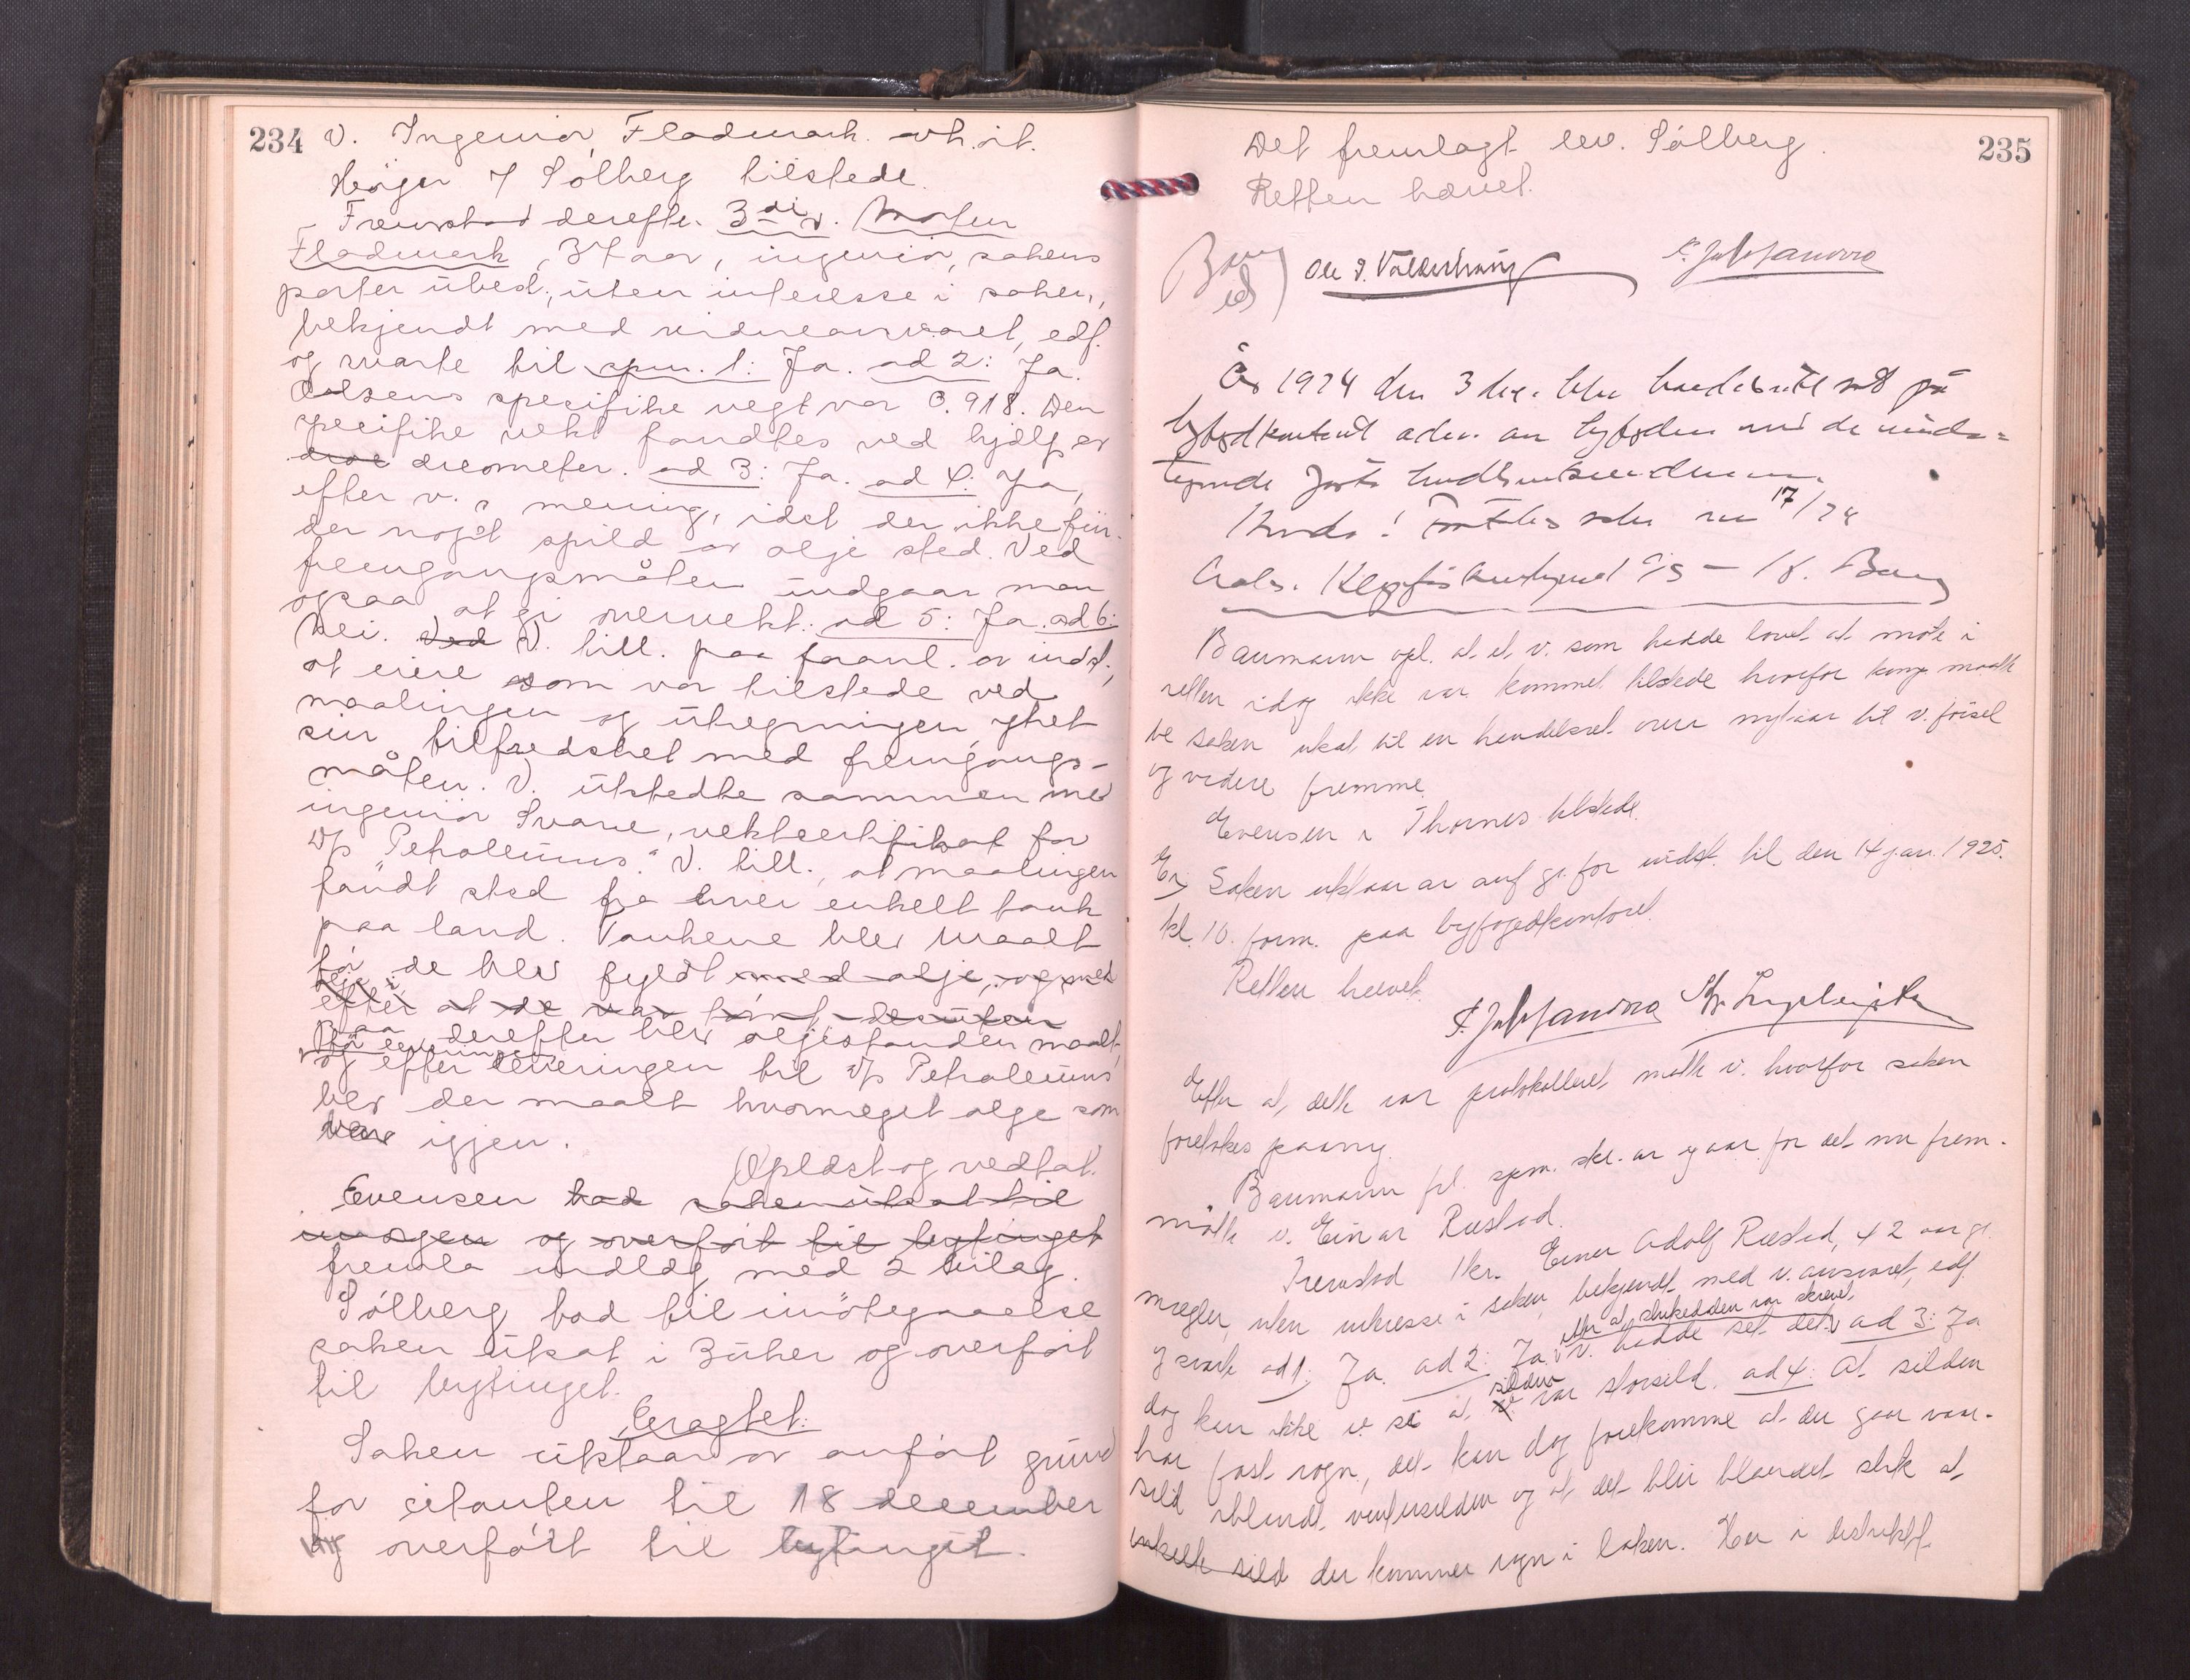 234
V. Ingeniør Fladmark avhørt.
Heiger & Sølberg tilstede.
Fremstod derefter 3die v. Morten
Fladmark, 37 aar, ingeniør, sakens
parter ubesl., uten interesse i saken,
bekjendt med vidneansvaret, edf.
og svarte til spm. 1: Ja. ad 2: Ja.
Oljens specifike vegt var 0.918. Den
specifike vekt fandtes ved hjælp av
areometer. ad 3: Ja. ad 4: Ja,
efter v.s mening, idet der ikke fin-
der noget spild av olje sted. Ved
fremgangsmåten undgaar man
ogsaa at gi overvekt. ad 5: Ja. ad 6:
Nei. Ved V. till. paa foranl. av indst.,
at eiere som var tilstede ved
maalingen og utregningen, ytret
sin tilfredshet med fremgangs-
måten. V. utstedte sammen med
ingeniør Svare, vektcertifikat for
D/S "Petroleums". V. till., at maalingen
fandt sted fra hver enkelt tank
paa land. Tankene blev maalt
før de blev fyldt med olje, og med
efter at de var tømt desuten
derefter blev oljestanden maalt,
og efter leveringen til D/S Petroleums
blev der maalt hvormeget olje som
var igjen.
Oplæst og vedtat.
Evensen bad saken utsat til
imorgen og overført til bytinget
fremla indlæg med 2 bilag.
Sølberg bad til imøtegaaelse
saken utsat i 3 uker og overført
til bytinget.
Eragtet:
Saken utstaar av anført grund
for citanten til 18 december
og overført til bytinget.
235
Det fremlagt lev. Sølberg.
Retten hævet.
Ole I. Valderhaug
År 1924 den 3 des. blev handelsrett satt på
byfodkontoret adm. av byfoden med de unde-
tegnede faste handelsrettsmedlemmer.
17/24
Baumann opl. at et v. som hadde lovet at møte i
retten idag ikke var kommet tilstede hvorfor komp. maatte
be saken utsat til en handelsret over nytaar til v. førsel
og videre fremme.
Evensen i Thornes tilstede.
Er: Saken utstaar av anf. gr. for indst. til den 14 jan. 1925.
kl. 10. form. paa byfogedkontoret.
Retten hævet.
Efter at dette var protokolleret møtte v. hvorfor saken
foretokes paany.
Baumann frl. spm. skr. av igaar for det nu frem-
møtte v. Einar Rustad.
Fremstod 1ste v. Einar Adolf Rustad, 42 aar gl.
mægler, uten interesse i saken, bekjendt med v. ansvaret, edf.
efter at slutseddelen var skrevet
og svarte ad 1: Ja. ad 2: Ja. v. hadde set det. ad 3: Ja
silden
dog kan ikke v. se at v. var storsild. ad 4: At silden
har fast rogn, det kan dog forekomme at der gaar vaar-
sild iblandt vintersilden og at det blir blandet slik at
enkelte sild der kommer rogn i laken. Her i distriktet